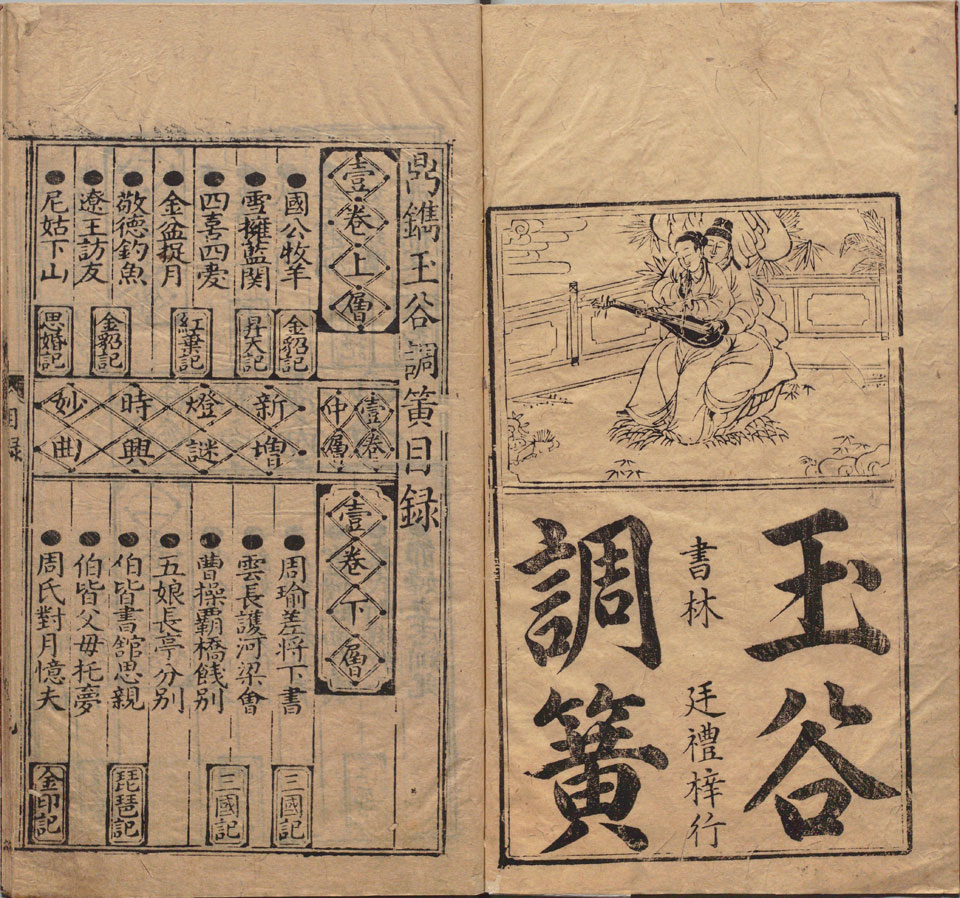 玉谷
書林 廷禮梓行
調簧
鼎鐫玉谷調簧目録
壹卷上層
國公牧羊 金貂記
雪擁藍関 昇天記
四喜四愛
金盆捉月 紅葉記
敬德釣魚
遼王訪友 金貂記
尼姑下山 思婚記
壹卷
仲層
新增
燈謎
時興
妙曲
壹卷下層
周瑜差將下書 三國記
雲長護河梁會
曹操覇橋餞别 三國記
五娘長亭分别
伯皆書舘思親 琵琶記
伯皆父母托夢
周氏對月憶夫 金印記
目録